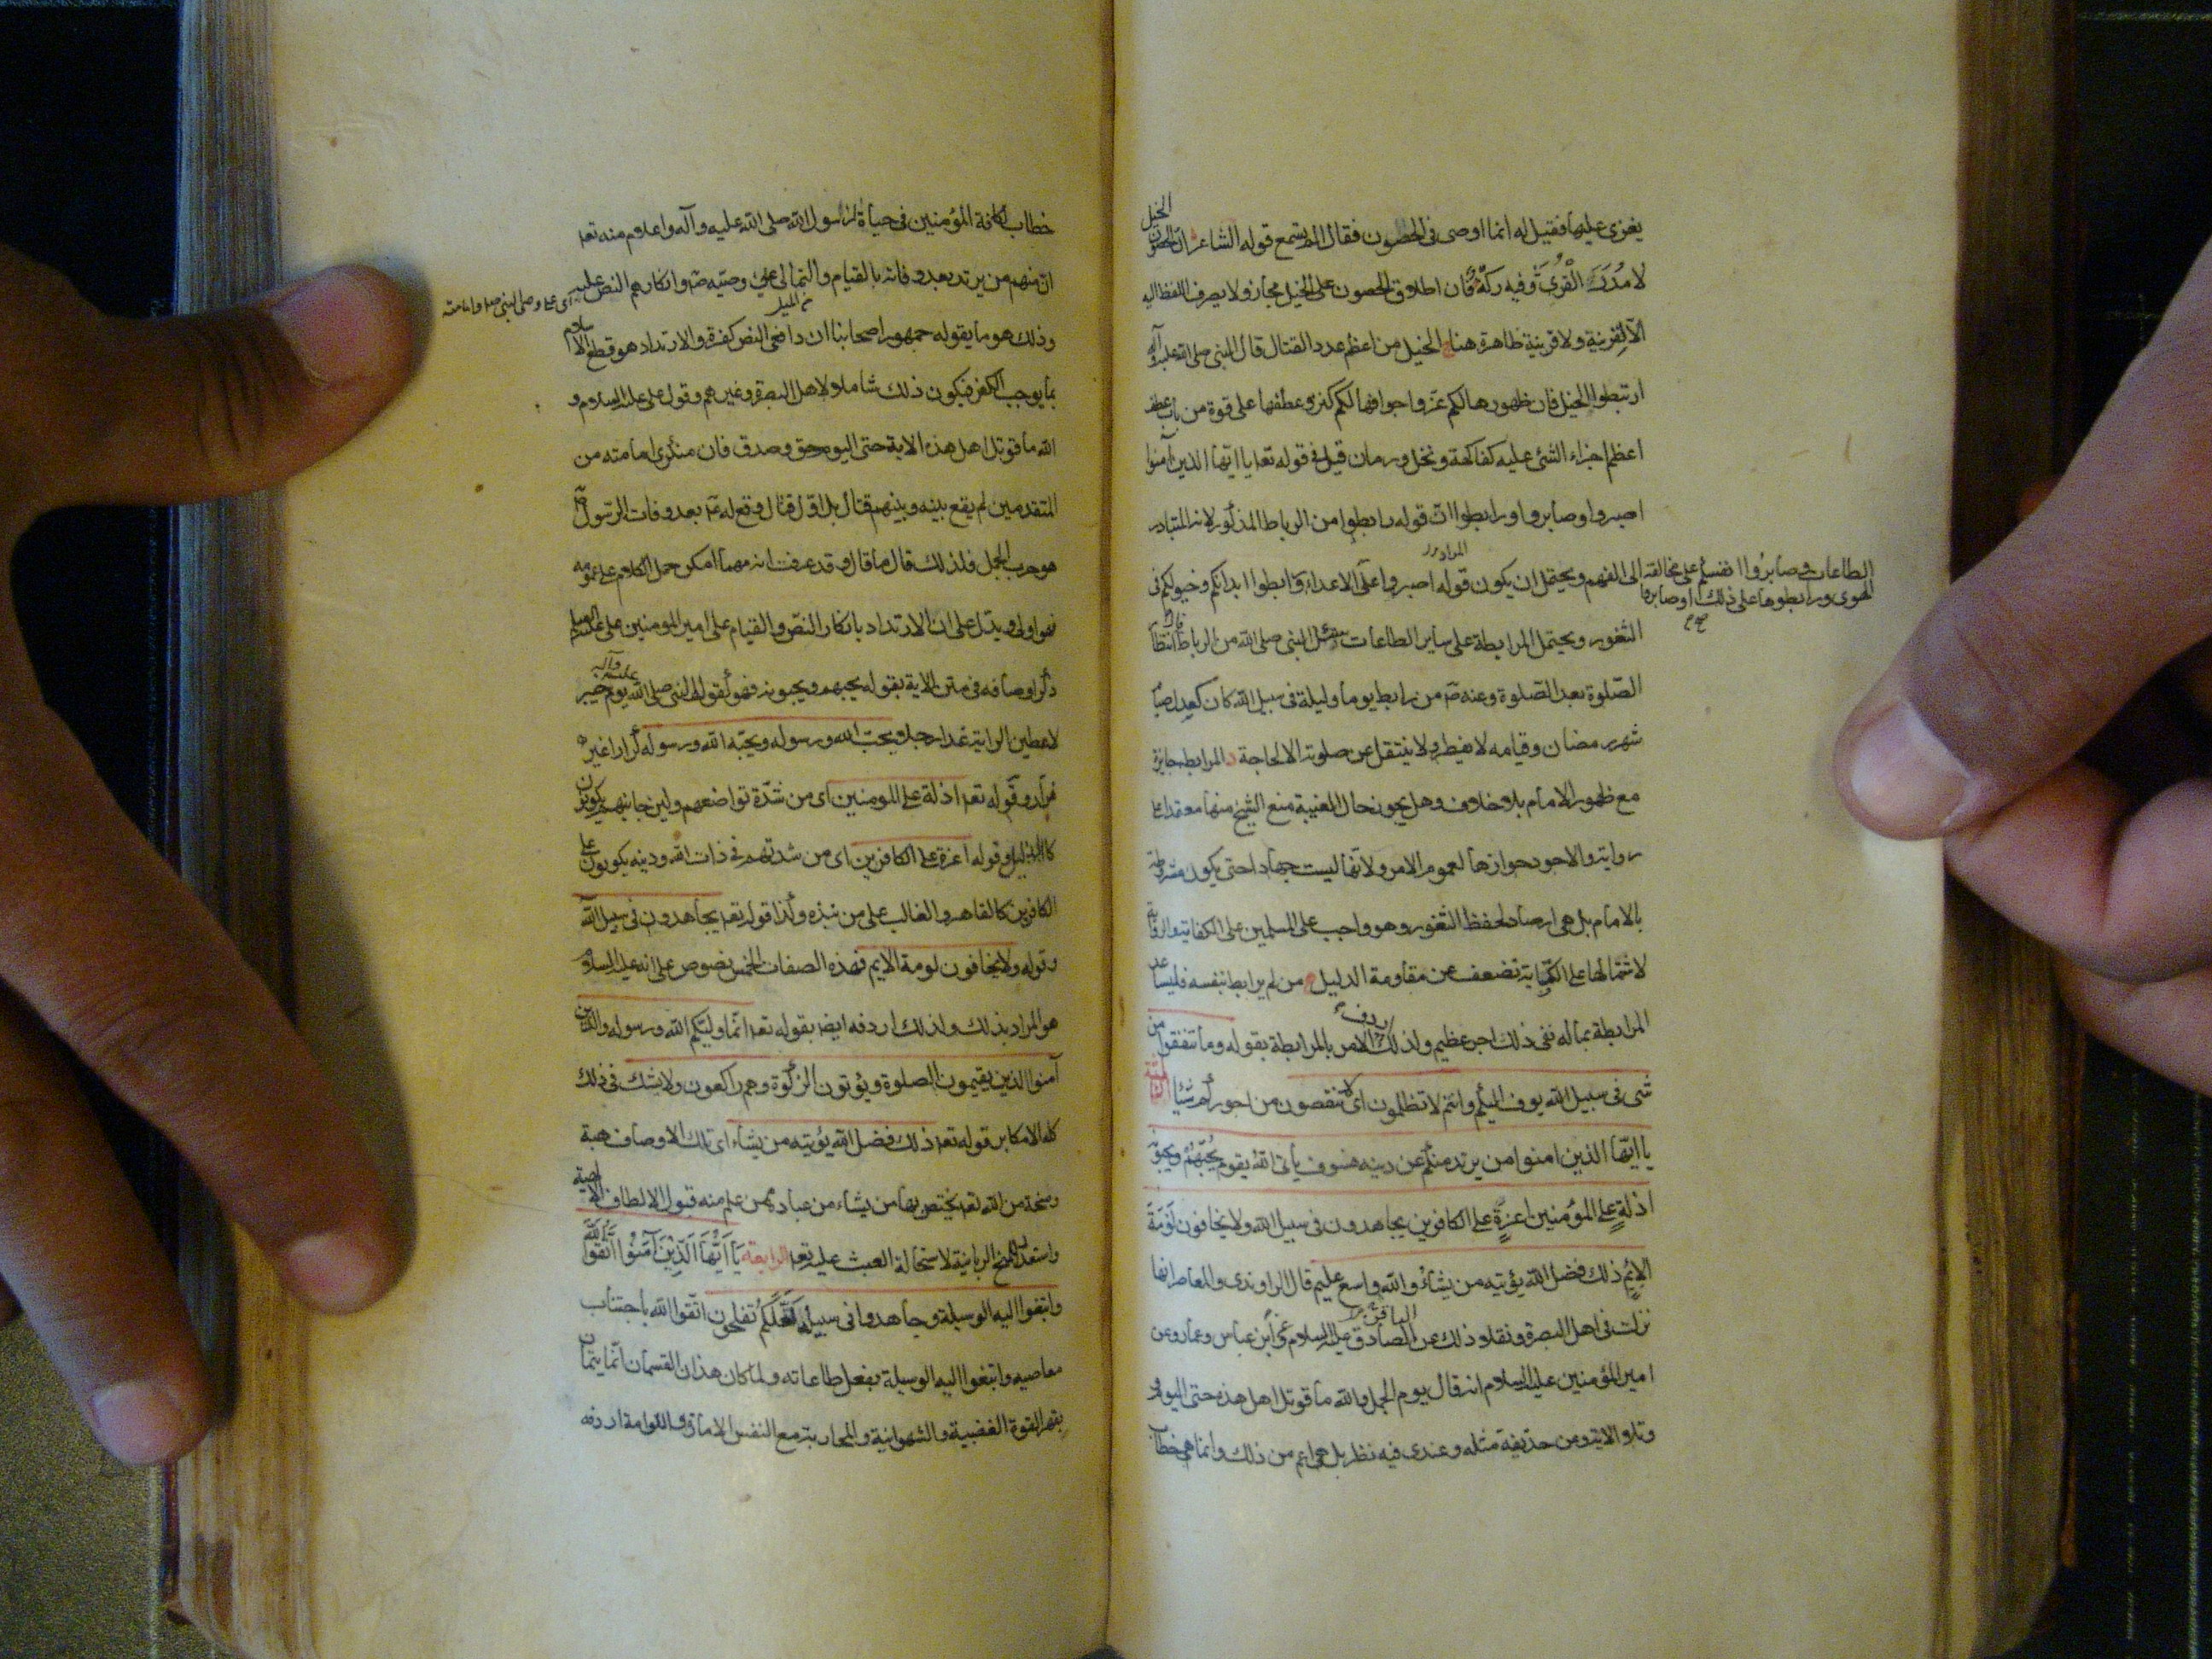 يغزى عليها فقيل له انما اوصى فى الحصون فقال الم تسمع قوله الشاعر ان الحصون الخيل
لا مدر القرى وفيه ركة فان اطلاق الحصون على الخيل مجاز ولا يصرف اللفظ اليه
الا لقرينة ولا قرينة ظاهرة هنا ج الخيل من اعظم عدد القتال قال النبى صلى الله عليه وآله
ارتبطوا الخيل فان ظهورها لكم عز واجوافها لكم كنز وعطفها على قوة من باب عطف
اعظم اجزاء الشئ عليه كفاكهة ونخل ورمان قيل فى قوله تعا يا ايها الذين آمنوا
اصبروا وصابروا ورابطوا ان قوله رابطوا من الرباط المذكور لانه المتبادر
الى الفهم ويحتمل ان يكون المراد قوله اصبروا على الاعداء ورابطوا ابدانكم وخيولكم فى
الطاعات وصابروا انفسكم على مخالفة
الهوى ورابطوها على ذلك او صابروا
الثغور ويحتمل المرابطة على ساير الطاعات سئل النبى صلى الله من الرباط قال انتظار
الصلوة بعد الصلوة وعنه ص من رابط يوما وليلة فى سبيل الله كان كعدل صيام
شهر رمضان وقيامه لا يفطر ولا ينتقل عن صلوته الا لحاجة د المرابطة جايزة
مع ظهور الامام بلا خلاف وهل يجوز حال الغيبة منع الشيخ منها معتمدا على
رواية والاجود جوازها لعموم الامر ولانها ليست جهادا حتى يكون مشروطة
بالامام بل هى ارصاد لحفظ الثغور وهو واجب على المسلمين على الكفاية والرواية
لاشتمالها على الكتابة تضعف عن مقاومة الدليل ه من لم يرابط بنفسه فليساعد
المرابطة بماله ففى ذلك اجر عظيم ولذلك ردف الامر بالمرابطة بقوله وما تنفقوا من
شى فى سبيل الله يوف اليكم وانتم لا تظلمون اى لا تنقصون من اجوركم شيئا الثالثة
يا ايها الذين امنوا من يرتد منكم عن دينه فسوف يأتى الله بقوم يحبهم ويحبونه
اذلة على المؤمنين اعزة على الكافرين يجاهدون فى سبيل الله ولا يخافون لومة
الايم ذلك فضل الله يؤتيه من يشاء والله واسع عليم قال الراوندى والمعاصر انها
نزلت فى اهل البصرة ونقلا ذلك عن الباقر والصادق عليه السلام وعن ابن عباس وعمار وعن
امير المؤمنين عليه السلام انه قال يوم الجمل والله ما قوتل اهل هذه حتى اليوم
وتلا الاية ومن حذيفة مثله وعندى فيه نظر بل هى اعم من ذلك وانما هى خطاب
خطاب لكافة المؤمنين فى حياة الرسول الله صلى الله عليه وآله واعلام منه تعا
ان منهم من يرتد بعد وفاته بالقيام والتمالى على وصيه ص وانكارهم النص عليه
اى على وصى النبى صلى وامامته
وذلك هو ما يقوله جمهور اصحابنا ان دافعى النص كفرة والارتداد هو قطع الاسلام
بما يوجب الكفر فيكون ذلك شاملا ولاهل البصرة وغيرهم وقول على عليه السلام و
الله ما قوتل اهل هذه الاية حتى اليوم حق وصدق فان منكرى امامته من
المتقدمين لم يقع بينه وبينهم قتال بل اول قتال وقع له ع بعد وفات الرسول ص
هو حرب الجمل فلذلك قال ما قال وقد عرفت انه مهما امكن حمل الكلام على عمومه
فهو اولى ويدل على ان الارتداد بانكار النص والقيام على امير المؤمنين على عليه السلام
ذكر اوصافه فى متن الاية بقوله يحبهم ويحبونه فهو كقول النبى صلى الله عليه وآله يوم خيبر
لاعطين الراية غدا رجلا يحب الله ورسوله ويحبه الله ورسوله كرارا غير
فرار وقوله تعا اذلة على المومنين اى من شدة تواضعهم ولين جانبهم يكونون
كالذليل وقوله اعزة على الكافرين اى من شدتهم فى ذات الله ودينه يكونون على
الكافرين كالقاهر والغالب على من نبذه وكذا قوله تعا يجاهدون فى سبيل الله
وقوله ولا يخافون لومة الايم فهذه الصفات الخمس نصوص على انه عليه السلام
هو المراد بذلك ولذلك اردفه ايضا بقوله تعا انما وليكم الله ورسوله والذين
آمنوا الذين يقيمون الصلوة ويؤتون الزكوة وهم راكعون ولا يشك فى ذلك
كله الا مكابر قوله تعا ذلك فضل الله يؤتيه من يشاء اى تلك الاوصاف هبة
ومنحة من الله تعا يختص بها من يشاء من عباده ممن علم منه قبول الالطاف الالهية
واستعد للمنح الربانية لاستحالة العبث عليه تعا الرابعة يا ايها الذين آمنوا اتقوا الله
وابتغوا اليه الوسيلة وجاهدوا فى سبيله لعلكم تفلحون اتقوا الله باجتناب
معاصيه وابتغوا اليه الوسيلة بفعل طاعاته ولما كان هذان القسمان انما يتمان
بقهر القوة الغضبية والشهوانية والمحاربة مع النفس الامارة واللوامة اردفه